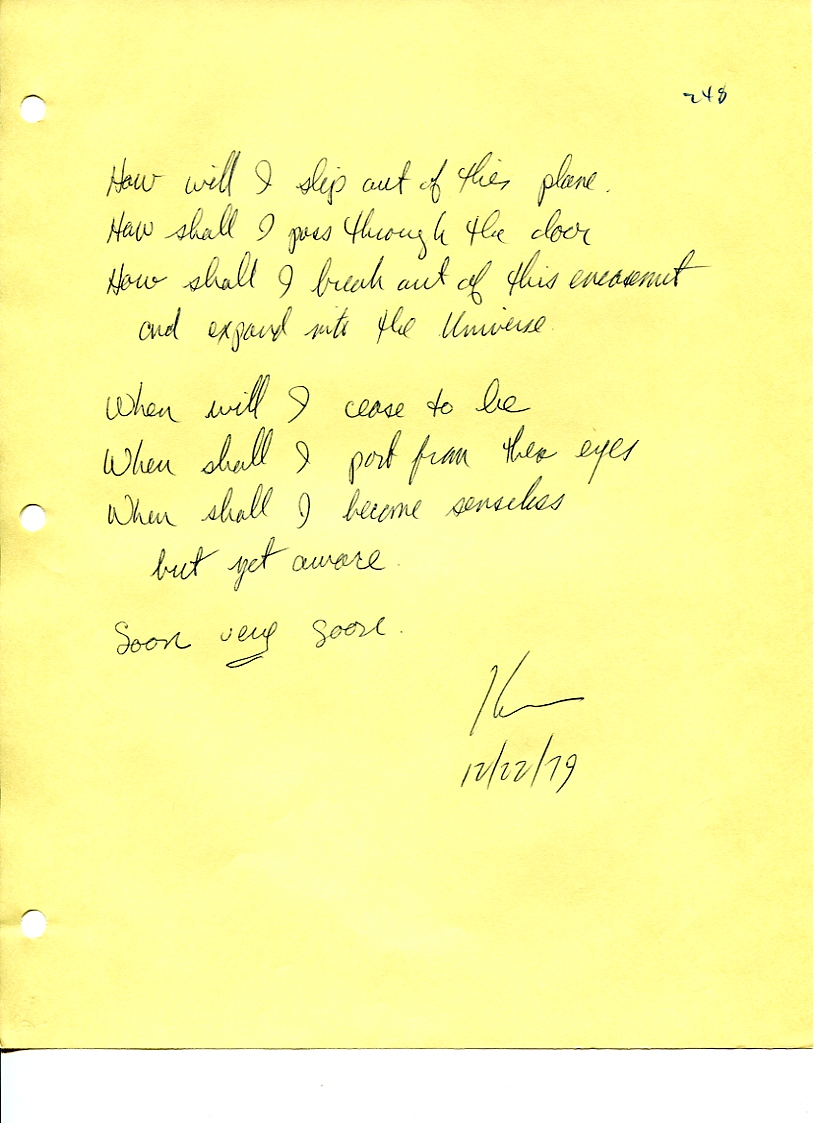 248
How will I slip out of this plane.
How shall I pass through the door
How shall I break out of this encasemnt
and expand into the Universe.
When will I cease to be
When shall I part from these eyes
When shall I become senseless
but yet aware.
Soon very soon.
12/22/79